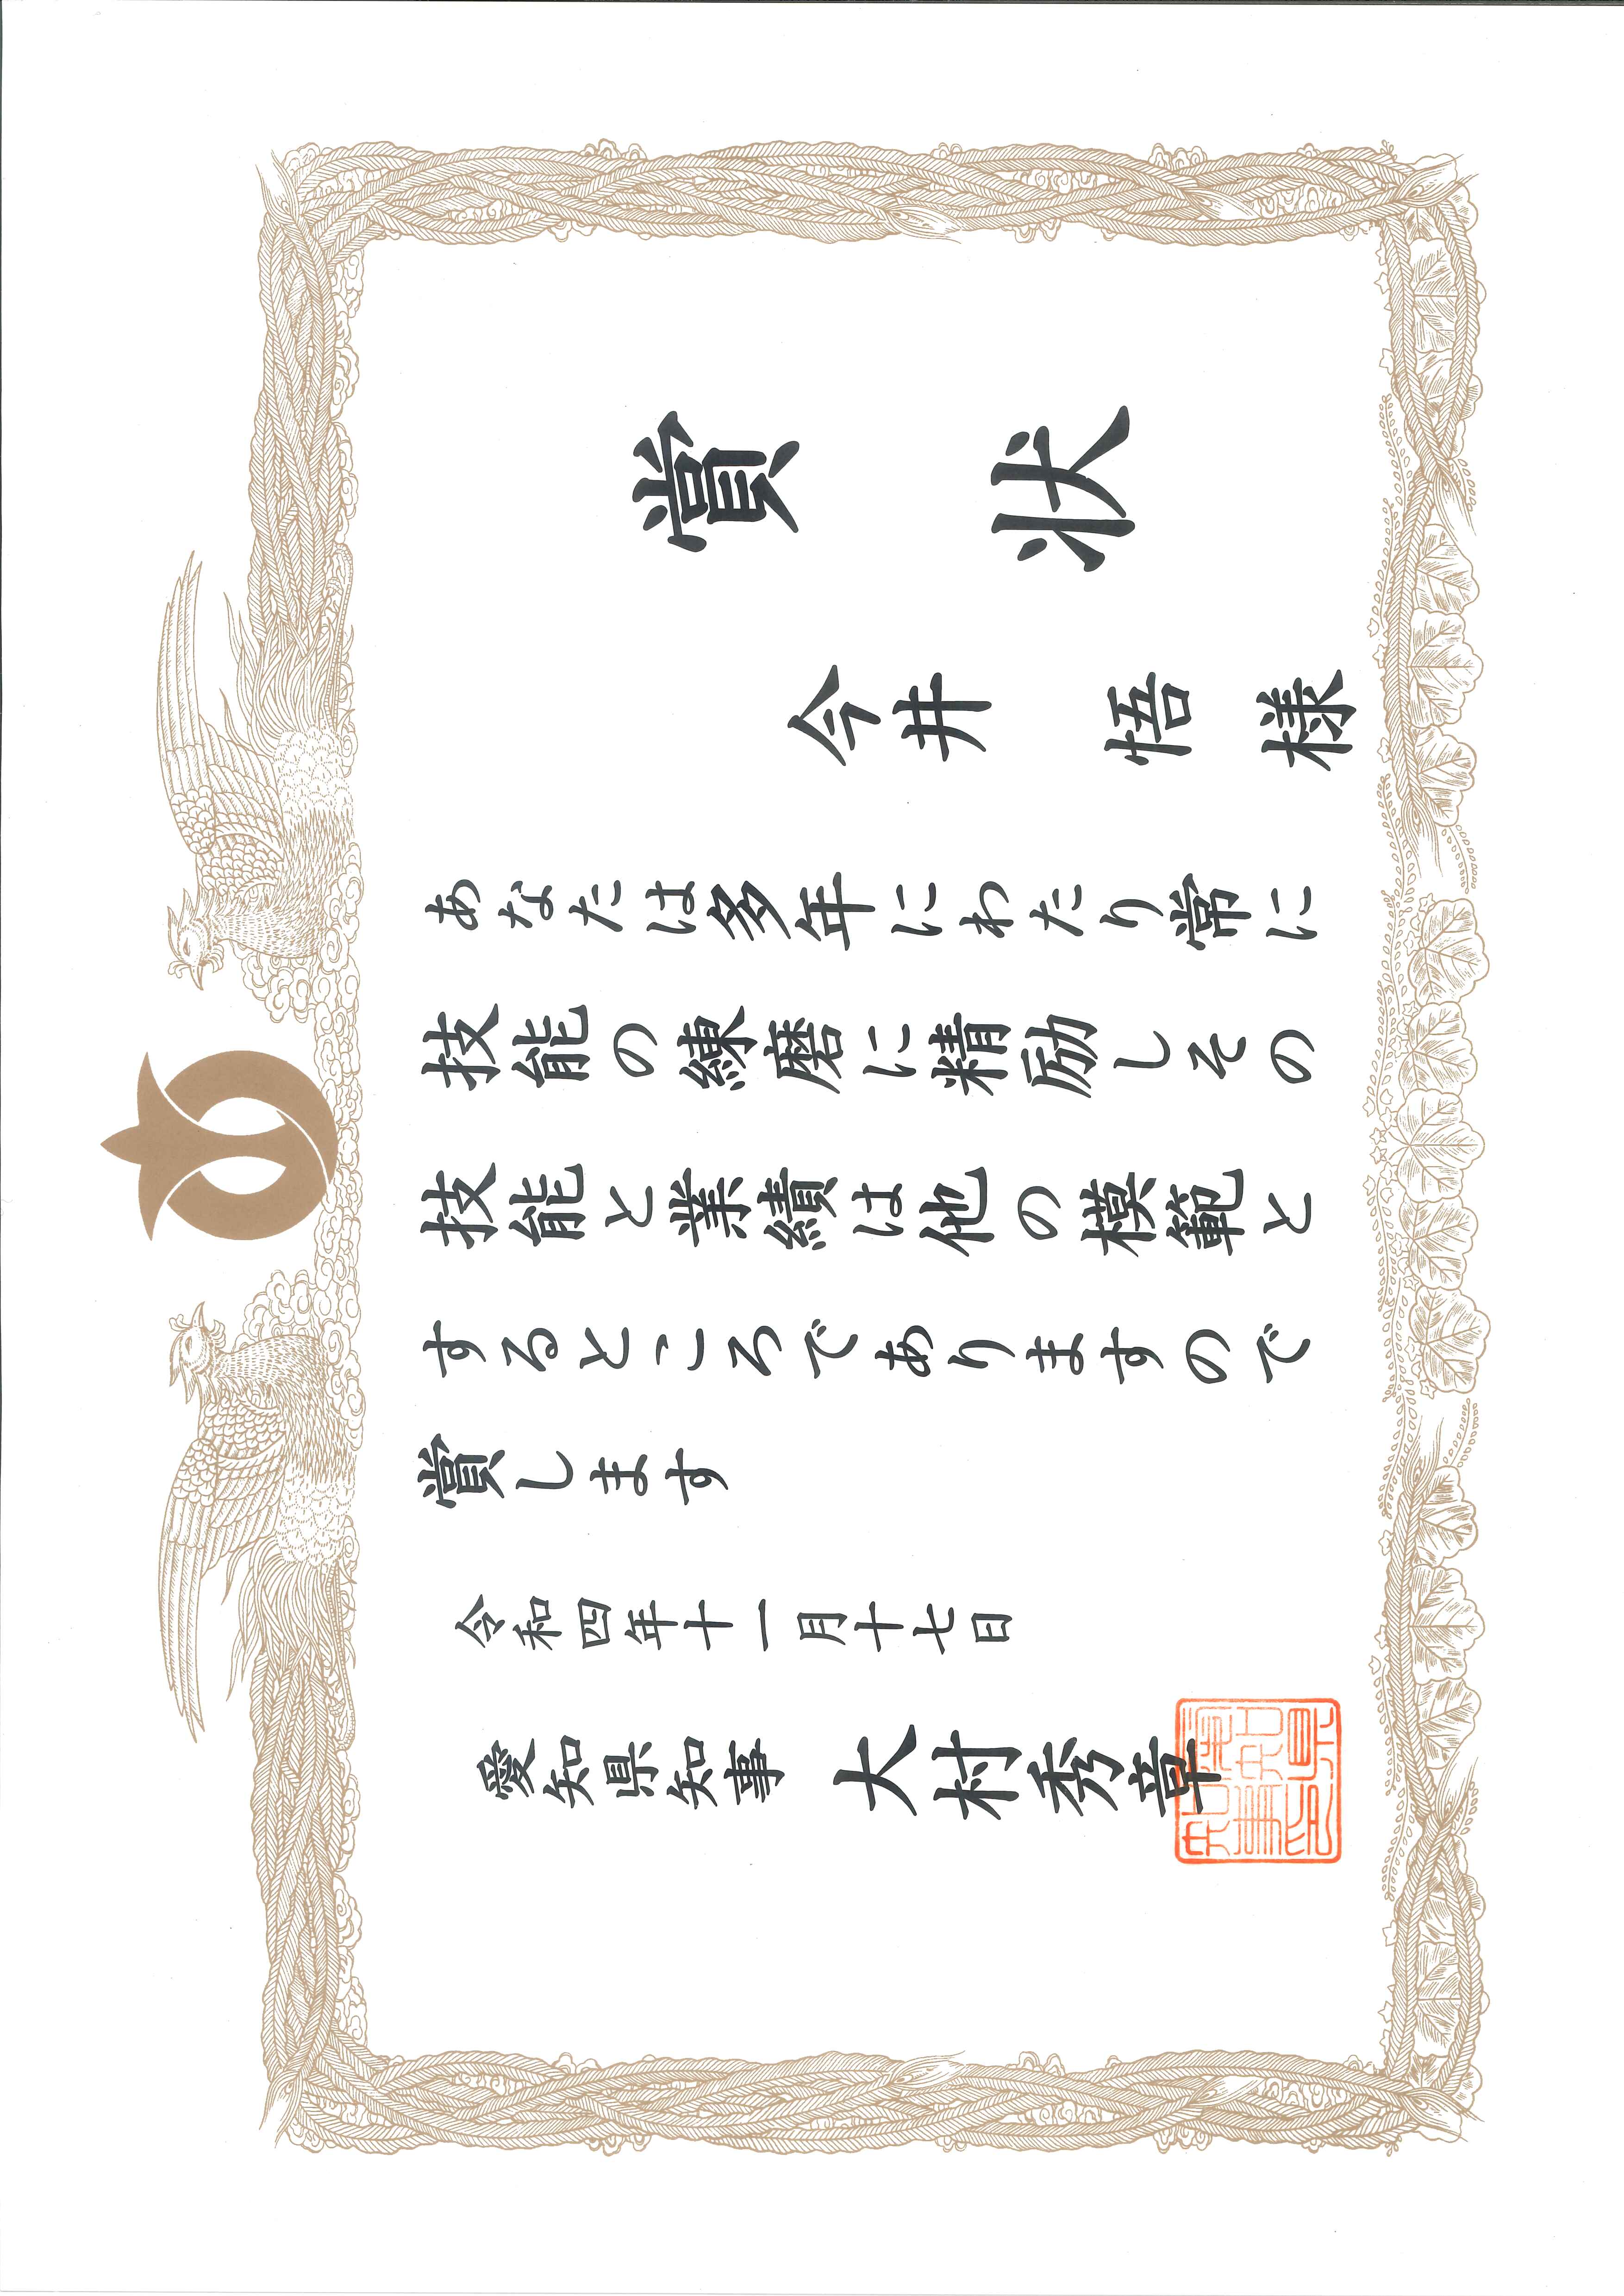 賞状
今井悟様
あなたは多年にわたり常に
技能の練磨に精励しその
技能と業績は他の模範と
するところでありますので
賞します
令和四年十一月十七日
愛知県知事 大村秀章
愛知県知事之印